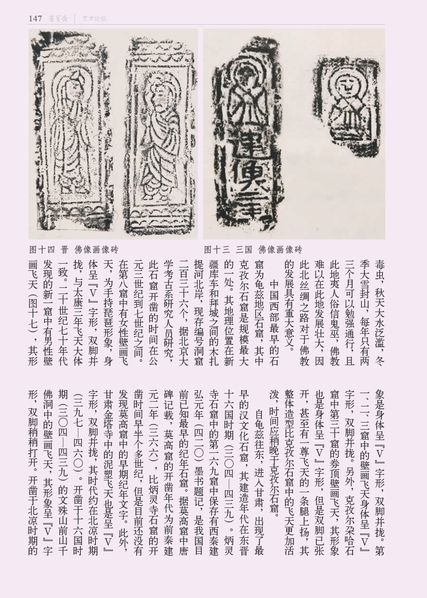 147 艺术论坛
图十四 晋 佛像画像砖
图十三 三国 佛像画像砖
毒虫，秋天大水泛滥，冬
季大雪封山，每年只有两
三个月可以勉强通行，且
此地夷人俗信鬼巫，佛教
难以在此地发展壮大，因
此北丝绸之路对于佛教
的发展具有重大意义。
中国西部最早的石
窟为龟兹地区石窟，其中
克孜尔石窟是规模最大
的一处，其地理位置在新
疆库车和拜城之间的木扎
提河北岸，现存编号洞窟
二百三十六个，据北京大
学考古系研究人员研究，
此石窟开凿的时间在公
元三世纪到七世纪之间。
在第八窟中有女性壁画飞
天，为手持琵琶形象，身
体呈『V』字形，双脚并
拢，与太康三年飞天大体
一致。二十世纪七十年代
发现的新一窟中有男性壁
画飞天（图十七），其形
象是身体呈『V』字形，双脚并拢。第
一、二、三窟中的壁画飞天身体呈『V』
字形，双脚并拢。另外，克孜尔尕哈石
窟中第三十窟的卷顶壁画飞天，其形象
也是身体呈『V』字形，但是双脚已张
开，甚至有一尊飞天的一条腿上扬，其
整体造型比克孜尔石窟中的飞天更加活
泼，时间应稍晚于克孜尔石窟。
自龟兹往东，进入甘肃，出现了最
早的汉文化石窟，其建造年代在东晋
十六国时期（三〇四—四三九）。炳灵
寺石窟中的第一六九窟中保存有西秦建
弘元年（四二〇）墨书题记，是我国目
前已知最早的纪年石窟。据莫高窟中唐
碑记载，莫高窟的开凿年代为前秦建
元二年（三六六），比炳灵寺石窟的开
凿时间早半个多世纪，但是目前还没有
发现莫高窟中的早期纪年文字。此外，
甘肃金塔寺中的泥塑飞天也是呈『V』
字形，双脚并拢，其时代约在北凉时期
（三九七—四六〇）。开凿于十六国时
期（三〇四—四三九）的文殊山前山千
佛洞中的壁画飞天，其形象呈『V』字
形，双脚稍稍打开。开凿于北凉时期的